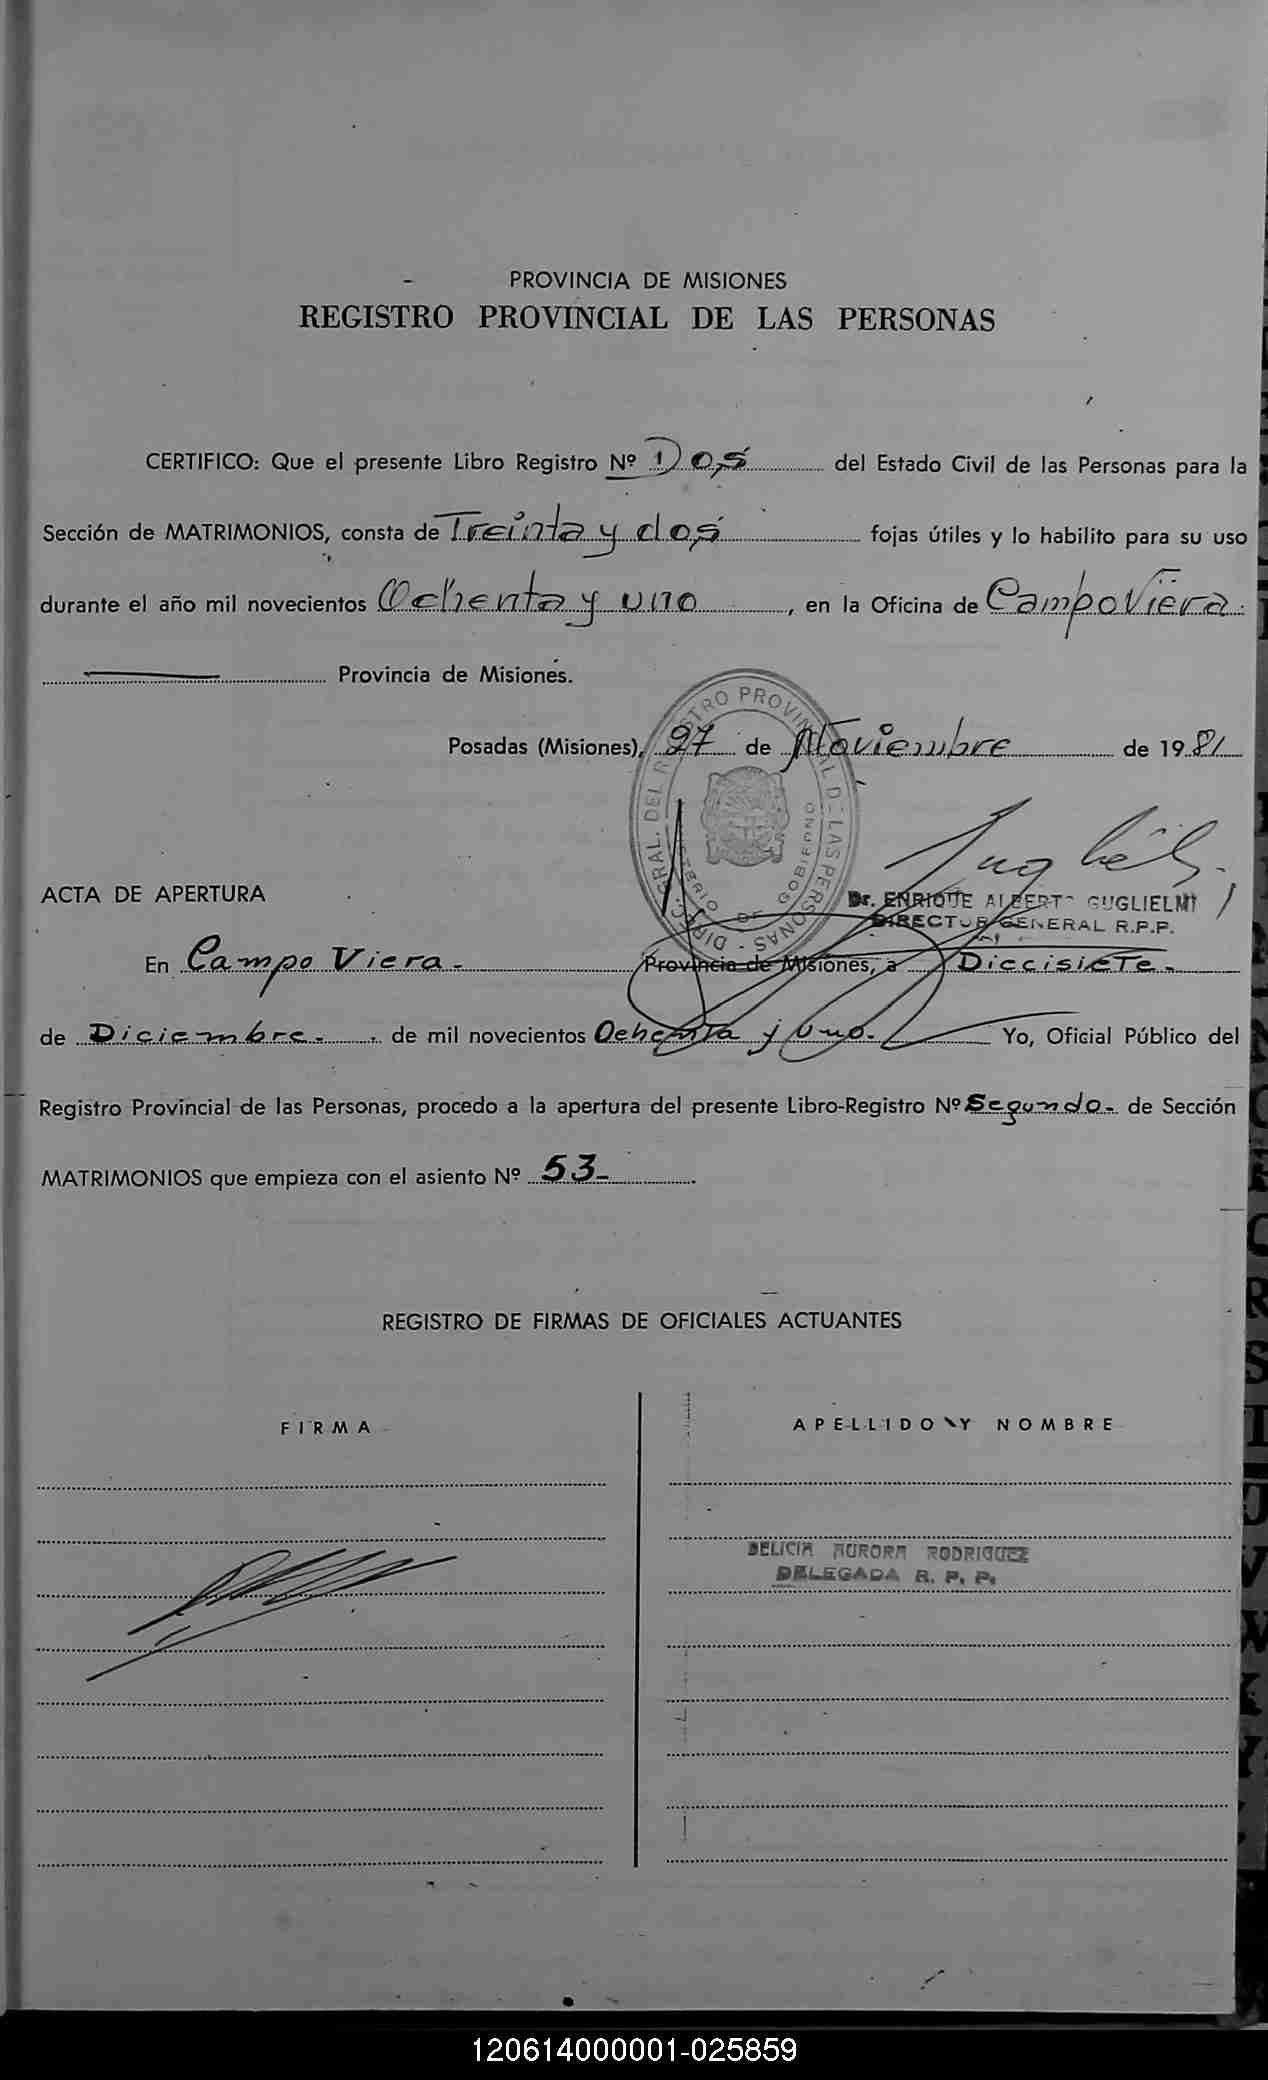 PROVINCIA DE MISIONES
REGISTRO PROVINCIAL DE LAS PERSONAS
CERTIFICO: Que el presente Libro Registro Nº Dos del Estado Civil de las Personas para la
Sección de MATRIMONIOS, consta de Treinta y dos fojas útiles y lo habilito para su uso
durante el año mil novecientos Ochenta y uno, en la Oficina de Campo Viera
Provincia de Misiones.
Posadas (Misiones), 27 de Noviembre de 1981
DIREC. GRAL. DEL REGISTRO PROVINCIAL DE LAS PERSONAS
MINISTERIO DE GOBIERNO
Dr. ENRIQUE ALBERTO GUGLIELMI
DIRECTOR GENERAL R.P.P.
ACTA DE APERTURA
En Campo Viera. Provincia de Misiones, a Diecisiete.
de Diciembre. de mil novecientos Ochenta y Uno. Yo, Oficial Público del
Registro Provincial de las Personas, procedo a la apertura del presente Libro-Registro Nº Segundo. de Sección
MATRIMONIOS que empieza con el asiento Nº 53-
REGISTRO DE FIRMAS DE OFICIALES ACTUANTES
FIRMA APELLIDO Y NOMBRE
DELICIA AURORA RODRIGUEZ
DELEGADA R. P. P.
120614000001-025859